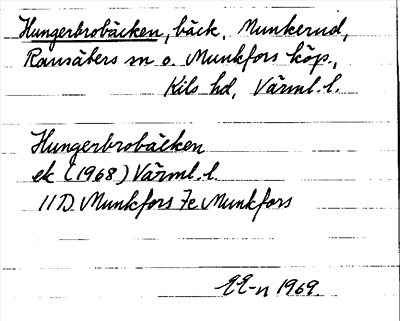 Hungerbrobäcken, bäck, Munkerud,
Ransäters sn o. Munkfors köp.,
Kils hd, Värml. l.
Hungerbrobäcken
ek (1968) Värml. l.
11D. Munkfors 7e Munkfors
1969.